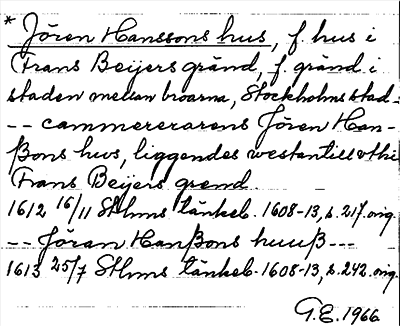 * Jören Hanssons hus, f. hus i
Frans Beijers gränd, f. gränd i
staden mellan broarna, Stockholms stad.
-- cammererarens Jören Han-
ßons hws, liggendes westantill vthi
Frans Beijers grend
1612 16/11 Sthms tänkeb. 1608-13, s. 217. orig.
-- Jöran Hanßons huuß ---
1613 25/7 Sthms tänkeb. 1608-13, s. 242. orig.
G.E. 1966